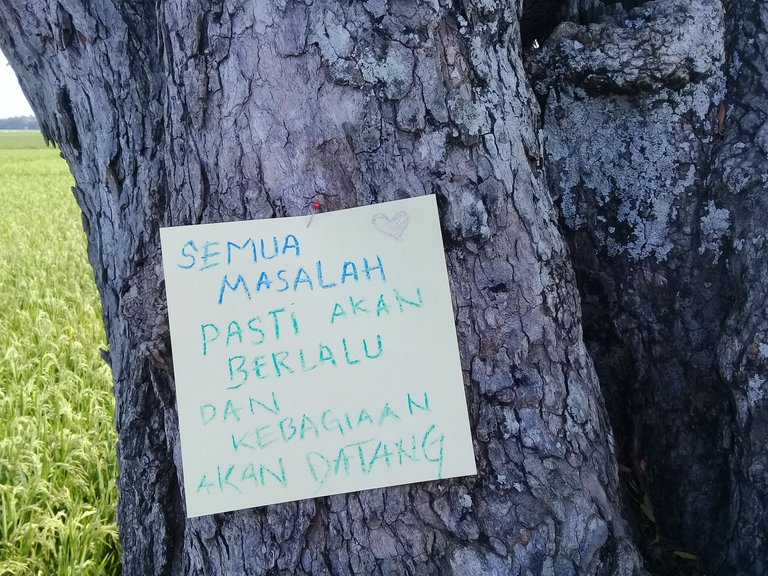 SEMUA
MASALAH
PASTI AKAN
BERLALU
DAN
KEBAGIAAN
AKAN DATANG